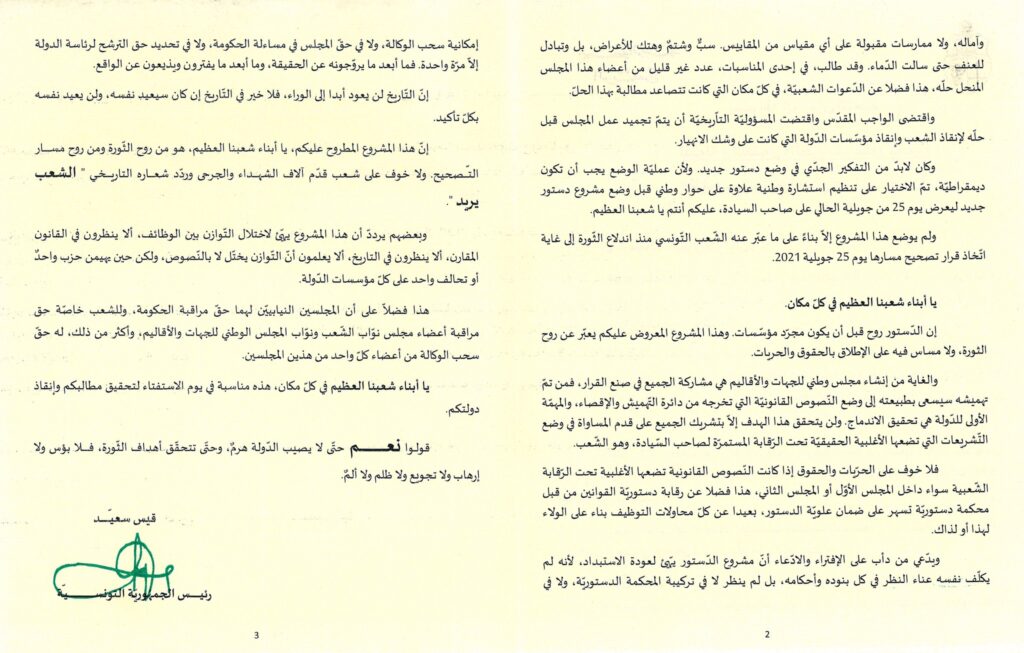 وآماله، ولا ممارسات مقبولة على أي مقياس من المقاييس. سبٌّ وشتمٌ وهتك للأعراض، بل وتبادل
للعنف حتى سالت الدّماء. وقد طالب، في إحدى المناسبات، عدد غير قليل من أعضاء هذا المجلس
المنحل حلّه، هذا فضلا عن الدعوات الشعبيّة، في كلّ مكان التي كانت تتصاعد مطالبة بهذا الحلّ.
واقتضى الواجب المقدّس واقتضت المسؤوليّة التاّريخيّة أن يتمّ تجميد عمل المجلس قبل
حلّه لإنقاذ الشعب وإنقاذ مؤسّسات الدّولة التي كانت على وشك الانهيار.
وكان لابدّ من التفكير الجدّي في وضع دستور جديد. ولأن عمليّة الوضع يجب أن تكون
ديمقراطيّة، تمّ الاختيار على تنظيم استشارة وطنية علاوة على حوار وطني قبل وضع مشروع دستور
جديد ليعرض يوم 25 من جويلية الحالي على صاحب السيادة، عليكم أنتم يا شعبنا العظيم.
ولم يوضع هذا المشروع إلاّ بناءً على ما عبّر عنه الشّعب التّونسي منذ اندلاع الثّورة إلى غاية
اتّخاذ قرار تصحيح مسارها يوم 25 جويلية 2021.
يا أبناء شعبنا العظيم في كلّ مكان.
إن الدّستور روح قبل أن يكون مجرّد مؤسّسات. وهذا المشروع المعروض عليكم يعبّر عن روح
الثورة، ولا مساس فيه على الإطلاق بالحقوق والحريات.
والغاية من إنشاء مجلس وطني للجهات والأقاليم هي مشاركة الجميع في صنع القرار، فمن تمّ
تهميشه سيسعى بطبيعته إلى وضع النّصوص القانونيّة التي تخرجه من دائرة التّهميش والإقصاء، والمهمّة
الأولى للدّولة هي تحقيق الاندماج. ولن يتحقق هذا الهدف إلاّ بتشريك الجميع على قدم المساواة في وضع
التّشريعات التي تضعها الأغلبية الحقيقيّة تحت الرّقابة المستمرّة لصاحب السّيادة، وهو الشّعب.
فلا خوف على الحرّيات والحقوق إذا كانت النّصوص القانونية تضعها الأغلبية تحت الرّقابة
الشّعبية سواء داخل المجلس الأوّل أو المجلس الثاني، هذا فضلا عن رقابة دستوريّة القوانين من قبل
محكمة دستوريّة تسهر على ضمان علويّة الدستور، بعيدا عن كلّ محاولات التوظيف بناء على الولاء
لهذا أو لذاك.
ويدّعي من دأب على الإفتراء والادعاء أنّ مشروع الدّستور يهيّئ لعودة الاستبداد، لأنه لم
يكلّف نفسه عناء النظر في كل بنوده وأحكامه، بل لم ينظر لا في تركيبة المحكمة الدستوريّة، ولا في
2
إمكانية سحب الوكالة، ولا في حقّ المجلس في مساءلة الحكومة، ولا في تحديد حق الترشح لرئاسة الدولة
إلاّ مرّة واحدة. فما أبعد ما يروّجونه عن الحقيقة، وما أبعد ما يفترون ويذيعون عن الواقع.
إنّ التّاريخ لن يعود أبدا إلى الوراء، فلا خير في التّاريخ إن كان سيعيد نفسه، ولن يعيد نفسه
بكلّ تأكيد.
إنّ هذا المشروع المطروح عليكم، يا أبناء شعبنا العظيم، هو من روح الثّورة ومن روح مسار
التّصحيح. ولا خوف على شعب قدّم آلاف الشهداء والجرحى وردّد شعاره التاريخي " الشعب
يريد ".
وبعضهم يردّد أن هذا المشروع يهيّئ لاختلال التّوازن بين الوظائف، ألا ينظرون في القانون
المقارن، ألا ينظرون في التاريخ، ألا يعلمون أنّ التّوازن يختّل لا بالنّصوص، ولكن حين يهيمن حزب واحدٌ
أو تحالف واحد على كلّ مؤسسات الدّولة.
هذا فضلاً على أن المجلسين النيابيّين لهما حقّ مراقبة الحكومة، وللشعب خاصّة حق
مراقبة أعضاء مجلس نوّاب الشّعب ونوّاب المجلس الوطني للجهات والأقاليم، وأكثر من ذلك، له حقّ
سحب الوكالة من أعضاء كلّ واحد من هذين المجلسين.
يا أبناء شعبنا العظيم في كلّ مكان، هذه مناسبة في يوم الاستفتاء لتحقيق مطالبكم وإنقاذ
دولتكم.
قولوا نعم حتّى لا يصيب الدّولة هرمٌ، وحتّى تتحقّق أهداف الثّورة، فلا بؤس ولا
إرهاب ولا تجويع ولا ظلم ولا ألمٌ.
قيس سعيّد
رئيس الجمهوريّة التونسيّة
3